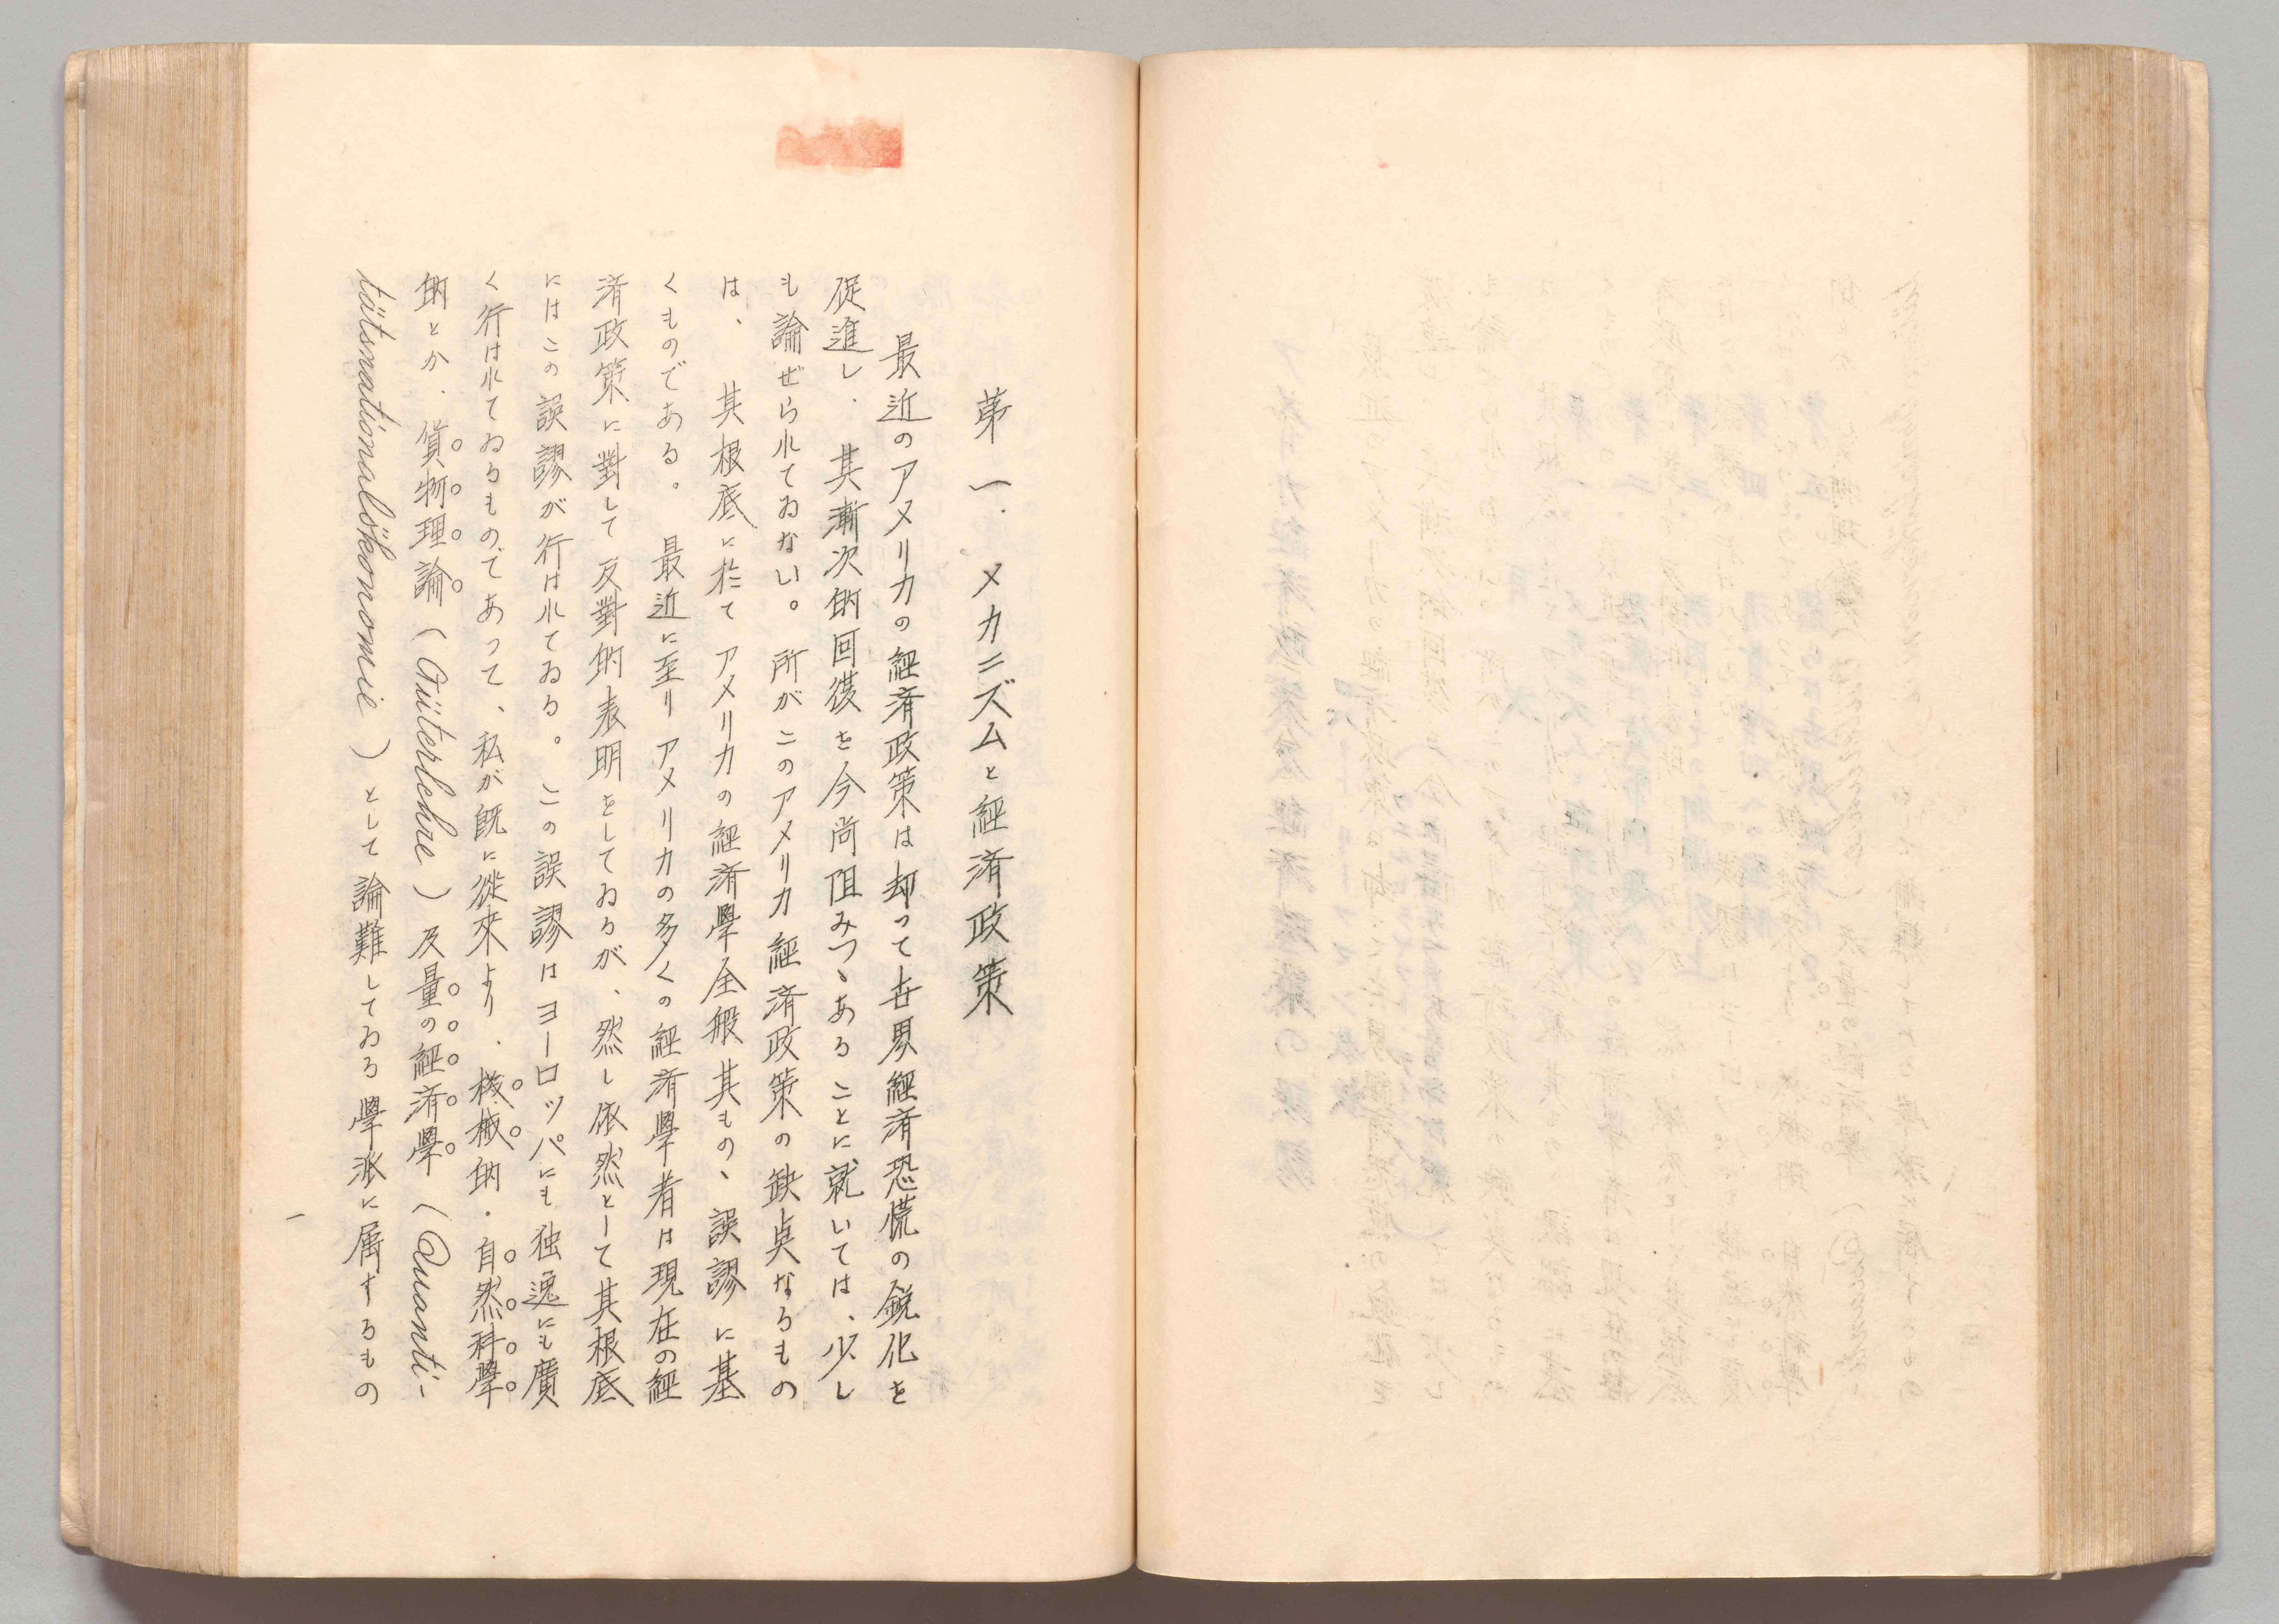 第一．メカニズムと経済政策
最近のアメリカの経済政策は却って世界経済恐慌の鋭化を
促進し．其漸次的回復を今尚阻みつゝあることに就いては、少し
も論ぜられてゐない。所がこのアメリカ経済政策の缺点なるもの
は、其根底に於てアメリカの経済學全般其もの、誤謬に基
くものである。最近に至りアメリカの多くの経済學者は現在の経
済政策に對して反對的表明をしてゐるが、然し依然として其根底
にはこの誤謬が行はれてゐる。この誤謬はヨーロッパにも独逸にも廣
く行はれてゐるものであって、私が既に從來より．機械的・自然科學
的とか．貨物理論（Güterlehre）及量の経済學（Quanti-
tätsnationalökonomie）として論難してゐる學派に属するもの
一